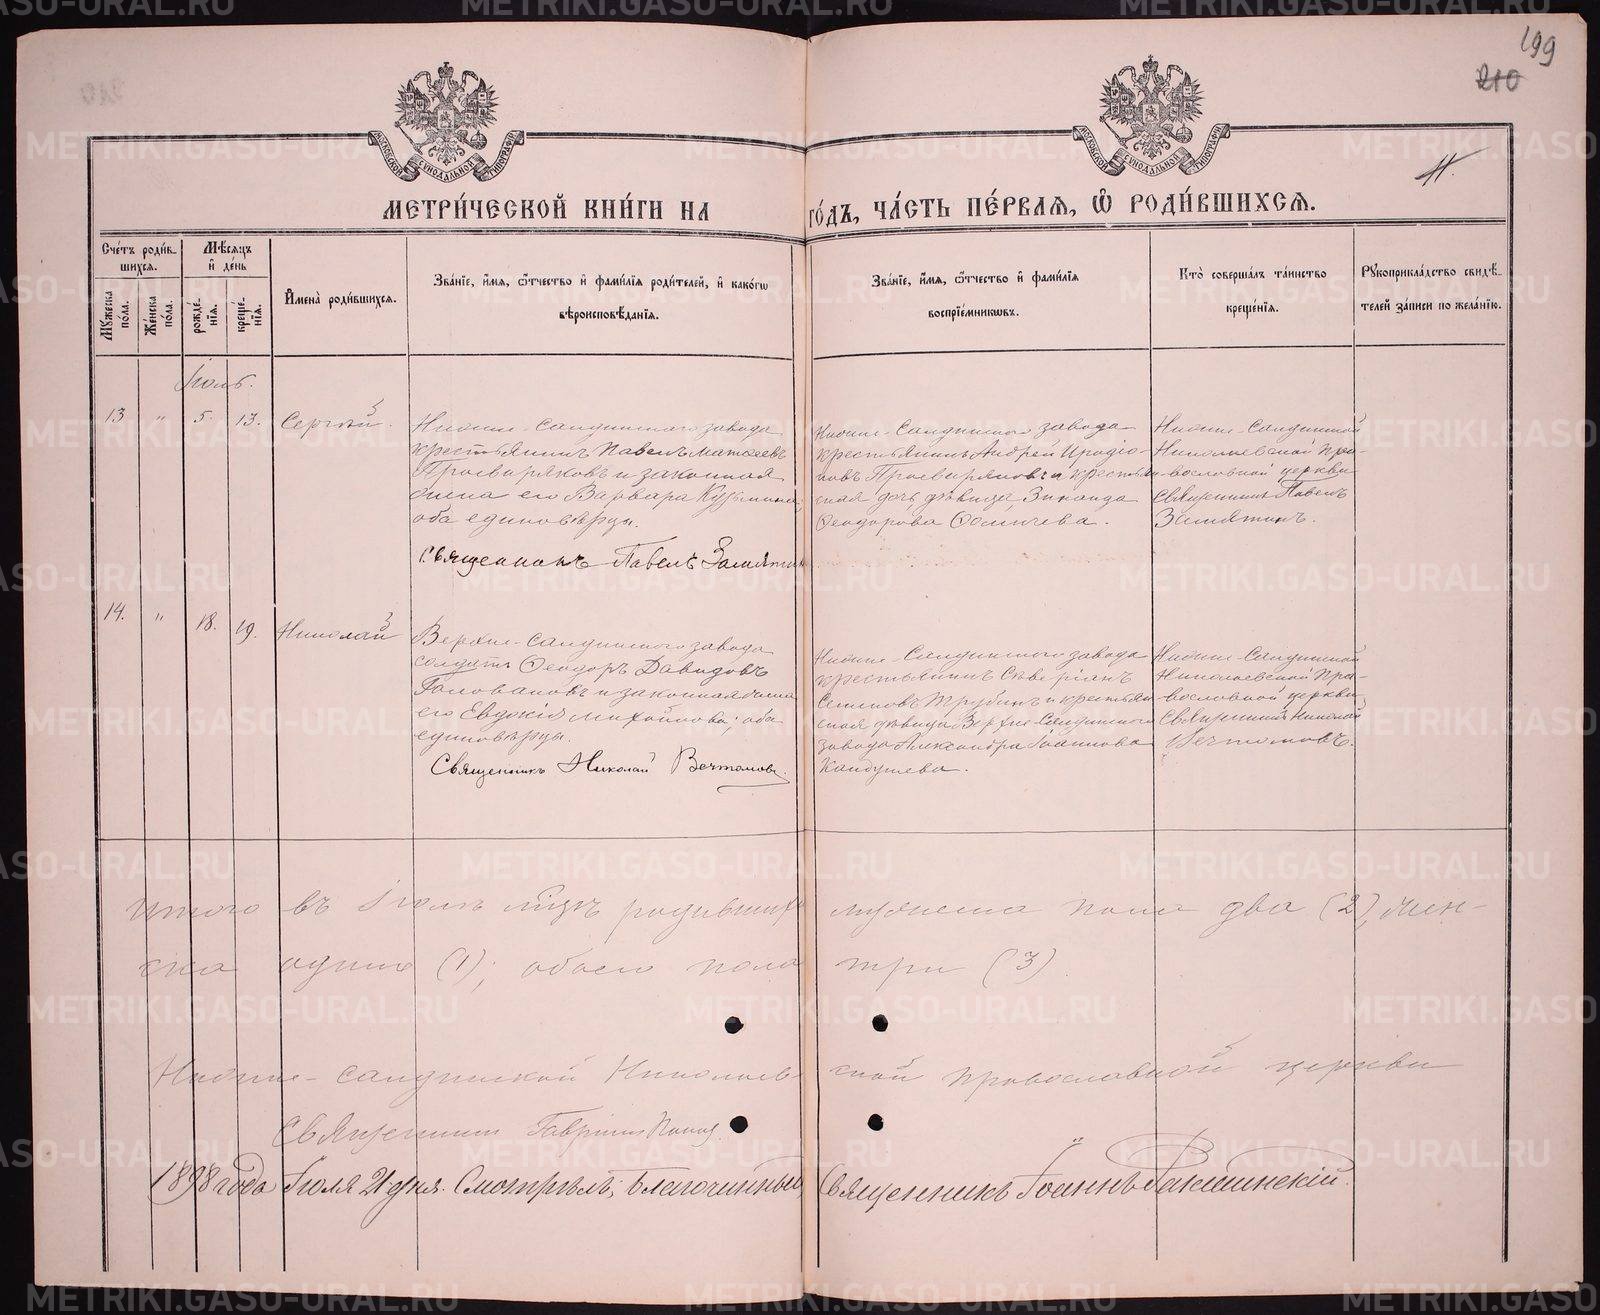 199
210
11.
МОСКОВСКОЙ СѴНОДАЛЬНОЙ ТИПОГРАФІИ
МОСКОВСКОЙ СѴНОДАЛЬНОЙ ТИПОГРАФІИ
МЕТРИ́ЧЕСКОЙ КНИ́ГИ НА
ГО́ДЪ, ЧА́СТЬ ПЕ́РВАЯ, Ѽ РОДИ́ВШИХСЯ.
Сче́тъ роди́в-
шихся.
Мѣсяцъ
и҆ де́нь
Мꙋ́жеска
по́ла.
Же́нска
по́ла.
рожде́-
нїя.
креще́-
нїя.
И҆мена̀ роди́вшихся.
Зва́нїе, и҆́мя, ѻ҆́тчество и҆ фами́лїя роди́телей, и҆ како́гѡ
вѣроисповѣ́данїя.
Зва́нїе, и҆́мя, ѻ҆́тчество и҆ фами́лїя
воспрїе́мникѡвъ.
Кто̀ соверша́лъ та́инство
креще́нїя.
Рꙋкоприкла́дство свидѣ́-
телей за́писи по жела́нїю.
Іюль.
13
"
5.
13.
Сергѣй.
Нижне-Салдинскаго завода
крестьянинъ Павелъ Матѳеевъ
Просвиряковъ и законная
жена его Варвара Кузьмина;
оба единовѣрцы.
Священникъ Павелъ Замятин
Нижне-Салдинскаго завода
крестьянинъ Андрей Иродіо-
новъ Просвиряковъ и крестьян-
ская дочь, дѣвица, Зинаида
Ѳеодорова Ѳомичева.
Нижне-Салдинской
Николаевской Пра-
вославной церкви
Священникъ Павелъ
Замятинъ.
14.
"
18.
19.
Николай
Верхне-Салдинскаго завода
солдатъ Ѳеодоръ Давидовъ
Головановъ и законная жена
его Евдокія Михайлова; оба
единовѣрцы.
Священникъ Николай Вечтомовъ.
Нижне-Салдинскаго завода
крестьянинъ Сѣверіанъ
Семеновъ Трубинъ и крестьян-
ская дѣвица Верхне-Салдинскаго
завода Александра Іоаннова
Кандушева.
Нижне-Салдинской
Николаевской Пра-
вославной церкви
Священникъ Николай
Вечтомовъ.
Итого въ Іюль мѣсяцъ родившихъ мужеска пола два (2), жен-
ска одинъ (1); обоего пола три (3)
Нижне-Салдинской Николаевской православной церкви
Священникъ Гавріилъ Поповъ
1898 года Іюля 21 дня. Смотрѣлъ; Благочинный Священникъ Іоаннъ Бакшинскій.
METRIKI.GASO-URAL.RU